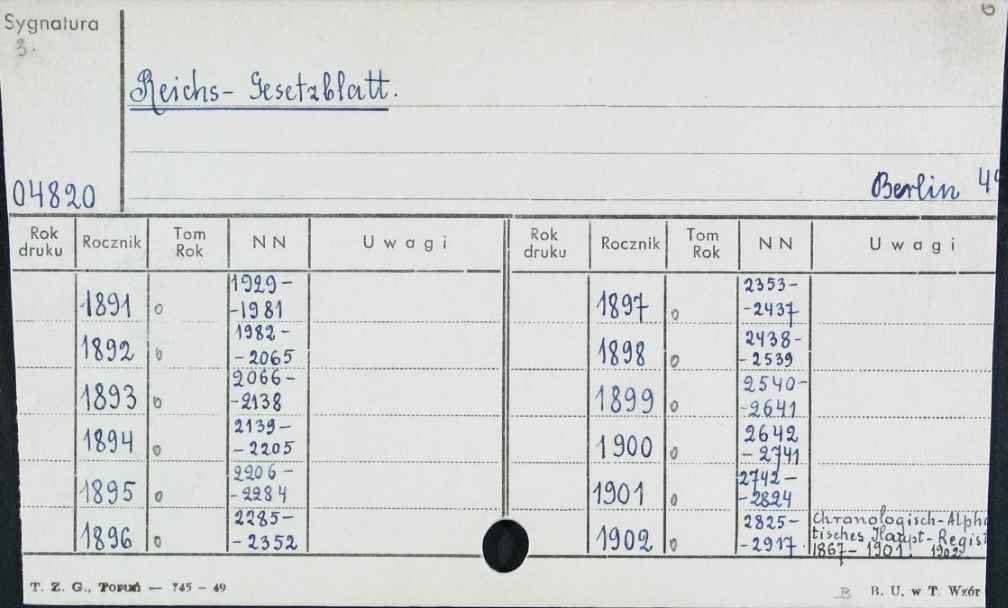 6
Sygnatura
3.
Reichs- Gesetzblatt.
04820
Berlin 4°
Rok druku Rocznik Tom Rok N N Uwagi Rok druku Rocznik Tom Rok N N Uwagi
1891 o 1929-
-1981
1892 o 1982-
-2065
1893 o 2066-
-2138
1894 o 2139-
-2205
1895 o 2206-
-2284
1896 o 2285-
-2352
1897 o 2353-
-2437
1898 o 2438-
-2539
1899 o 2540-
-2641
1900 o 2642
-2741
1901 o 2742-
-2824
1902 o 2825-
-2917
Chronologisch-Alpha
tisches Haupt-Regist
1867-1901. 1902
T. Z. G., Toruń — 745 — 49
B B. U. w T. Wzór